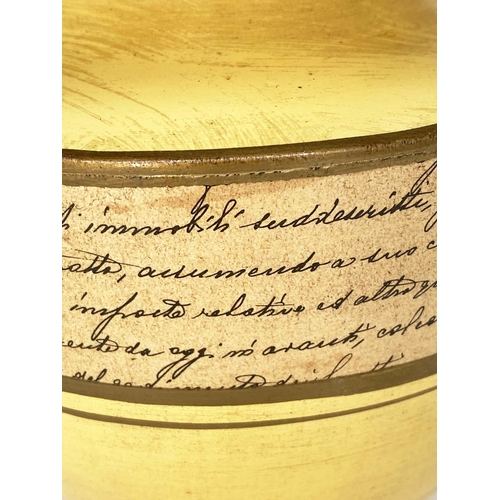 immobili suddescritti,
atto, assumendo a suo c
imposte relative ed altro qu
ente da oggi in avanti, colo
del